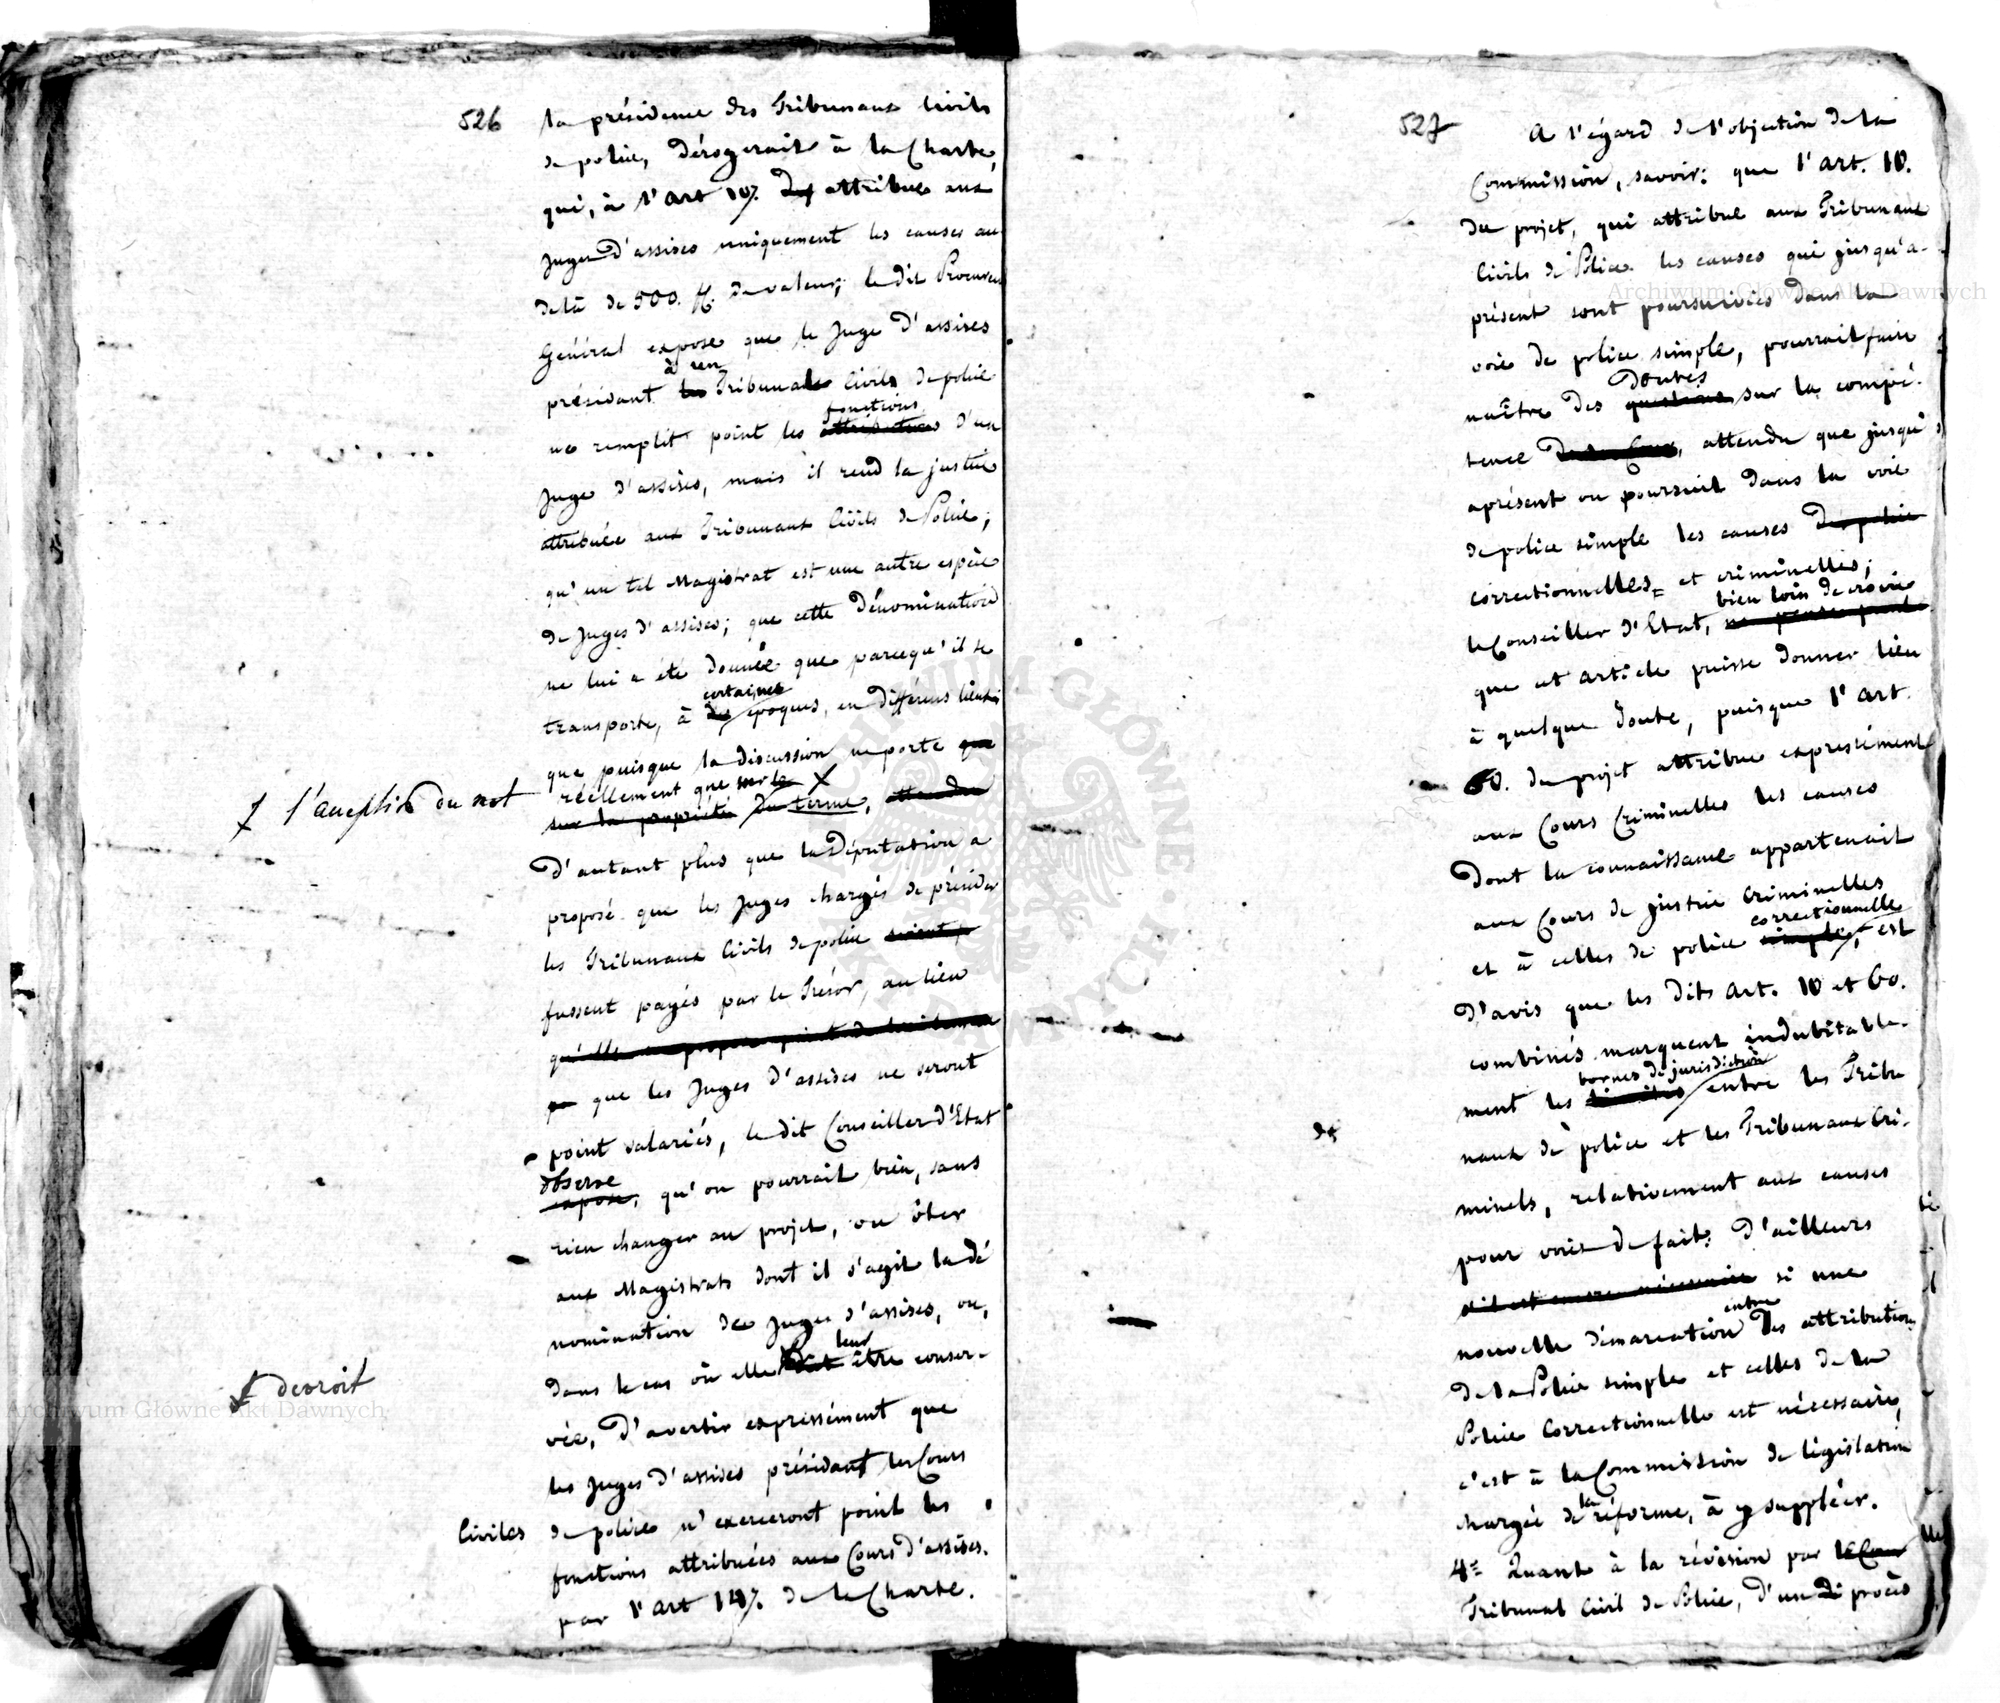 526
la présidence des Tribunaux Civils
de police, dérogerait à la Charte,
qui, à l'art 147. attribue aux
Juges d'assises uniquement les causes au
delà de 500. ff. de valeur; le dit Procureur
Général expose que le Juge d'assises
à ren
présidant les Tribunale Civils de police
fonctions
ne remplit point les attributions d'un
Juge d'assises, mais il rend la justice
attribuée aux Tribunaux Civils de Police;
qu'un tel Magistrat est une autre espèce
de Juges d'assises; que cette dénomination
ne lui a été donnée que parcequ'il se
certaines
transporte, à des époques, en différens lieux;
que puisque la discussion ne porte que
réellement que sur le X
sur la propriété du terme, attendu
Ɨ l'acception du mot
D'autant plus que la Députation a
proposé que les Juges chargés de présider
les Tribunaux Civils de police soient p
fussent payés par le Trésor, au lieu
qu'elle ne propose point de
que les Juges d'assises ne seront
point salariés, le dit Conseiller d'Etat
observe
expose, qu'on pourrait bien, sans
rien changer au projet, ou ôter
aux Magistrats dont il s'agit la dé
nomination de Juges d'assises, ou,
leur
dans le cas où elle doit être conser-
Ɨ devroit
vée, d'avertir expressément que
les Juges d'assises présidant les Cours
Civiles de police n'exerceront point les
fonctions attribuées aux Cours d'assises.
par l'art 147. de la Charte.
527
A l'égard de l'objection de la
Commission, savoir: que l'art. 10.
du projet, qui attribue aux Tribunaux
Civils de Police les causes qui jusqu'à-
présent sont poursuivies dans la
voie de police simple, pourrait faire
doutes
naître des questions sur la compé-
tence, attendu que jusqu'
aprésent on poursuit dans la voie
de police simple les causes de police
correctionnelles et criminelles;
bien loin de croire
le Conseiller d'Etat, ne pense point
que cet article puisse donner lieu
à quelque doute, puisque l'art.
60. du projet attribue expressément
aux Cours Criminelles les causes
dont la connaissance appartenait
aux Cours de justice Criminelles
correctionnelle
et à celles de police simple, est
d'avis que les dits art. 10 et 60.
combinés marquent indubitable-
bornes de jurisdiction
ment les limites entre les Tribu
naux de police et les Tribunaux Cri-
minels, relativement aux causes
pour voies de fait. D'ailleurs
s'il est encore nécessaire si une
entre
nouvelle démarcation des attributions
de la Police simple et celles de la
Police Correctionnelle est nécessaire,
c'est à la Commission de législation
la
chargée de réforme, à y suppléer.
4º Quant à la révision par le Cour
Tribunal Civil de Police, d'un di procès
Archiwum Główne Akt Dawnych
Archiwum Główne Akt Dawnych
ARCHIWUM GŁÓWNE AKT DAWNYCH